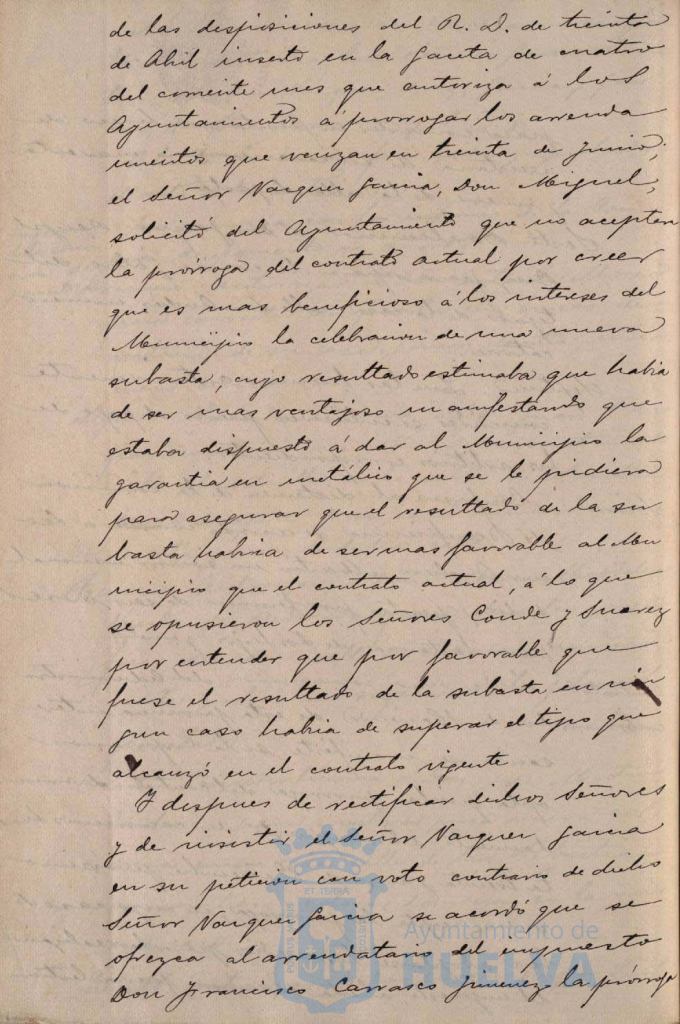 de las desposiciones del R. D. de treinta
de Abril inserto en la Gaceta de cuatro
del corriente mes que autoriza á los
Ayuntamientos á prorrogar los arrenda
mientos que venzan en treinta de Junio,
el Señor Vazquez Garcia, Don Miguel,
solicitó del Ayuntamiento que no acepten
la prórroga del contrato actual por creer
que es mas beneficioso á los intereses del
Municipio la celebracion de una nueva
subasta, cuyo resultado estimaba que habia
de ser mas ventajoso manifestando que
estaba dispuesto á dar al Municipio la
garantia en metálico que se le pidiera
para asegurar que el resultado de la su
basta habria de ser mas favorable al Mu
nicipio que el contrato actual, á lo que
se opusieron los Señores Conde y Suarez
por entender que por favorable que
fuese el resultado de la subasta en nin
gun caso habia de superar el tipo que
alcanzó en el contrato vigente
Y despues de rectificar dichos Señores
y de insistir el Señor Vazquez Garcia
en su peticion con voto contrario de dicho
Señor Vazquez Garcia se acordó que se
ofrezca al arrendatario del impuesto
Don Francisco Carrasco Jimenez la prórroga
ET TERRA
Ayuntamiento de
HUELVA